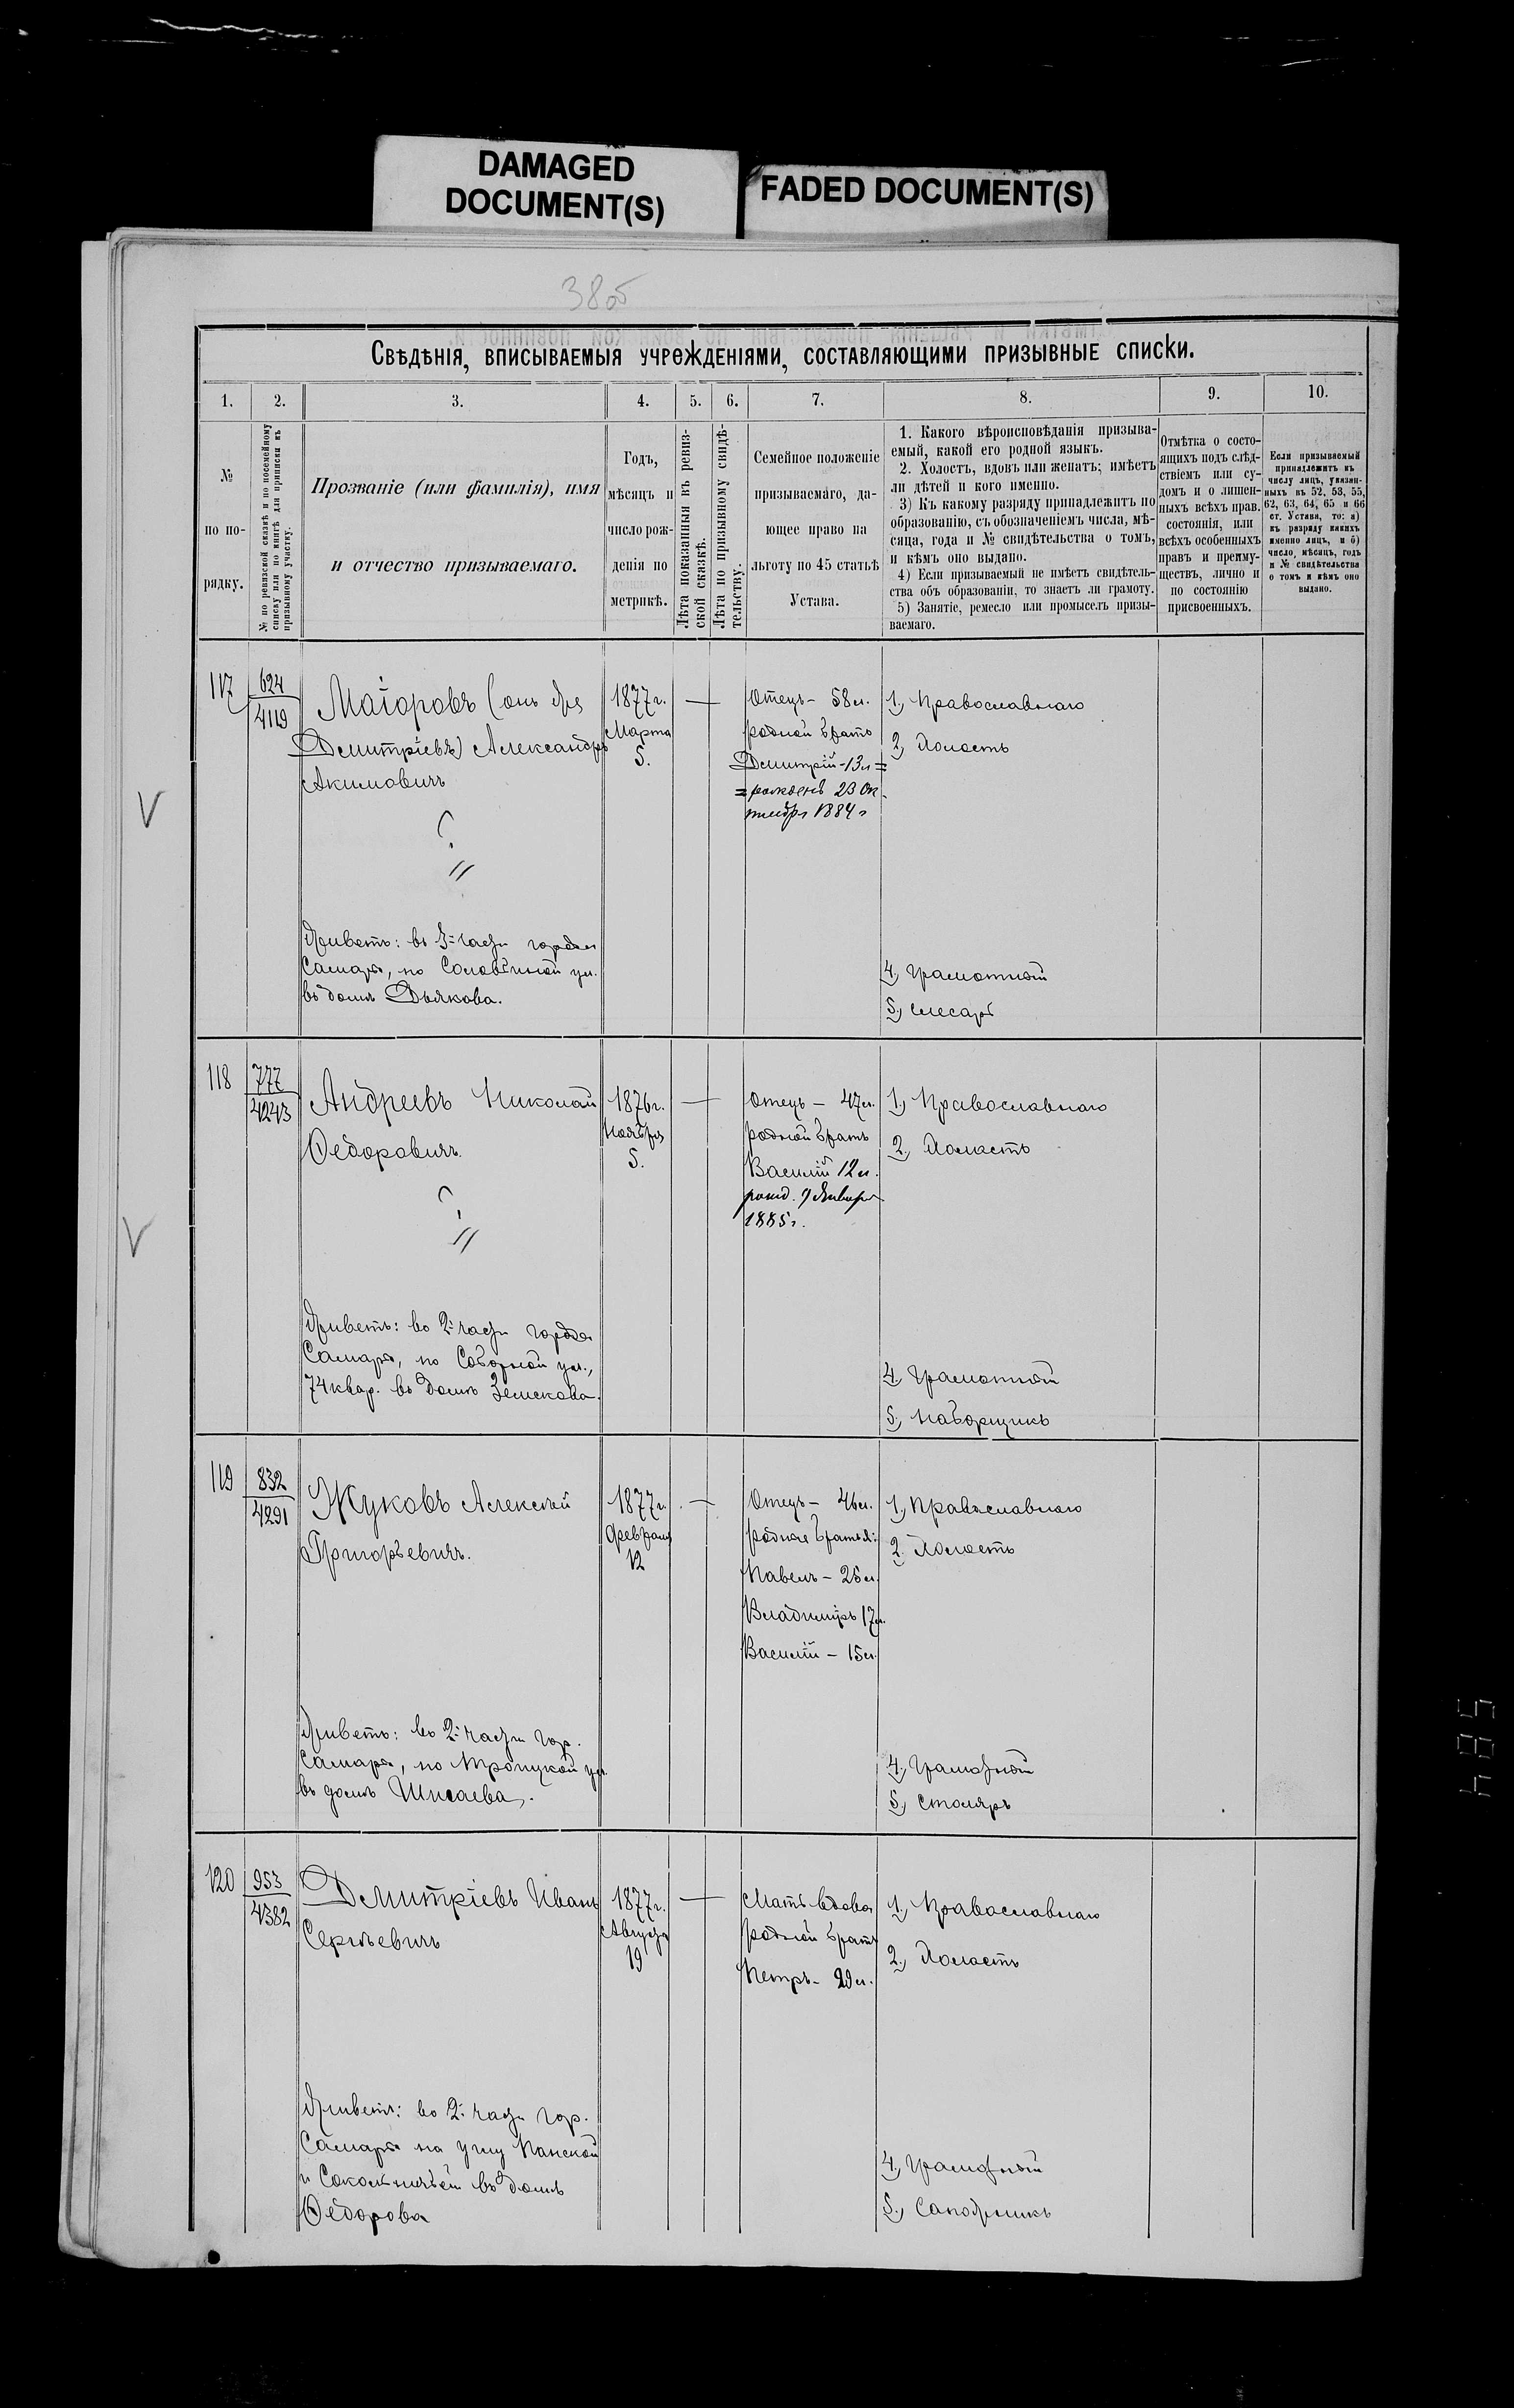 DAMAGED
DOCUMENT(S)
FADED DOCUMENT(S)
38об
Свѣдѣнія, вписываемыя учрежденіями, составляющими призывные списки.
1. 2. 3. 4. 5. 6. 7. 8. 9. 10.
№
по по-
рядку.
№ по ревизской сказкѣ и по посемейному
списку или по книгѣ для приписки къ
призывному участку.
Прозваніе (или фамилія), имя
и отчество призываемаго.
Годъ,
мѣсяцъ и
число рож-
денія по
метрикѣ.
Лѣта показанныя въ ревиз-
ской сказкѣ.
Лѣта по призывному свидѣ-
тельству.
Семейное положеніе
призываемаго, да-
ющее право на
льготу по 45 статьѣ
Устава.
1. Какого вѣроисповѣданія призыва-
емый, какой его родной языкъ.
2. Холостъ, вдовъ или женатъ; имѣетъ
ли дѣтей и кого именно.
3) Къ какому разряду принадлежитъ по
образованію, съ обозначеніемъ числа, мѣ-
сяца, года и № свидѣтельства о томъ,
и кѣмъ оно выдано.
4) Если призываемый не имѣетъ свидѣтель-
ства объ образованіи, то знаетъ ли грамоту.
5) Занятіе, ремесло или промыселъ призы-
ваемаго.
Отмѣтка о состо-
ящихъ подъ слѣд-
ствіемъ или су-
домъ и о лишен-
ныхъ всѣхъ прав.
состоянія, или
всѣхъ особенныхъ
правъ и преиму-
ществъ, лично и
по состоянію
присвоенныхъ.
Если призываемый
принадлежитъ къ
числу лицъ, указан-
ныхъ въ 52, 53, 55,
62, 63, 64, 65 и 66
ст. Устава, то: а)
къ разряду какихъ
именно лицъ, и б)
число, мѣсяцъ, годъ
и № свидѣтельства
о томъ и кѣмъ оно
выдано.
117
624
4119
Маіоровъ (онъ же
Дмитріевъ) Александръ
Акимовичъ
?
//
Живетъ: въ 3-й части города
Самары, по Соловьиной ул.
въ домѣ Дьякова.
1877 г.
Марта
5.
Отецъ - 58 л.
родной братъ
Дмитрій - 13 л =
= рожденъ 23 Ок-
тября 1884 г
1, Православнаго
2, Холостъ
4, Грамотный
5, слесарь
V
118
777
4243
Андреевъ Николай
Федоровичъ.
?
//
Живетъ: во 2-й части города
Самары, по Соборной ул.,
74 квар. въ домѣ Землскова.
1876 г.
Ноября
5.
Отецъ - 47 л.
родной братъ
Василій 12 л.
рожд. 9 Января
1885 г.
1, Православнаго
2, Холостъ
4, Грамотный
5, Наборщикъ
V
119
832
4291
Жуковъ Алексѣй
Григорьевичъ.
Живетъ: во 2-й части гор.
Самары, по Троицкой ул.
въ домѣ Шисаева.
1877 г.
Февраля
12
Отецъ - 46 л.
родные братья:
Павелъ - 25 л.
Владиміръ 17 л.
Василій - 15 л.
1, Православнаго
2. Холостъ
4, Грамотный
5, Столяръ
120
953
4382
Дмитріевъ Иванъ
Сергѣевичъ
Живетъ: во 2-й части гор.
Самары на углу Панской
и Сокольничьей въ домѣ
Федорова
1877 г.
Августа
19
Мать вдова
родной братъ
Петръ - 29 л.
1, Православнаго
2, Холостъ
4, Грамотный
5, Сапожникъ
584